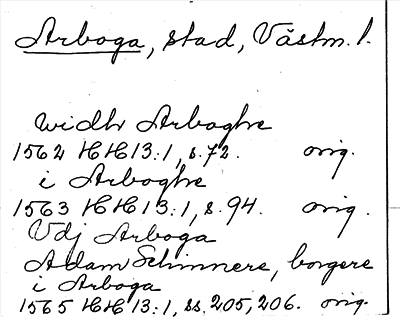 Arboga, stad, Västm. l.
widh Arboghe
1562 HH 13:1, s. 72. orig.
i Arboghe
1563 HH 13:1, s. 94. orig.
Vdj Arboga
Adam Schinnere, borgere
i Arboga
1565 HH 13:1, ss. 205, 206. orig.